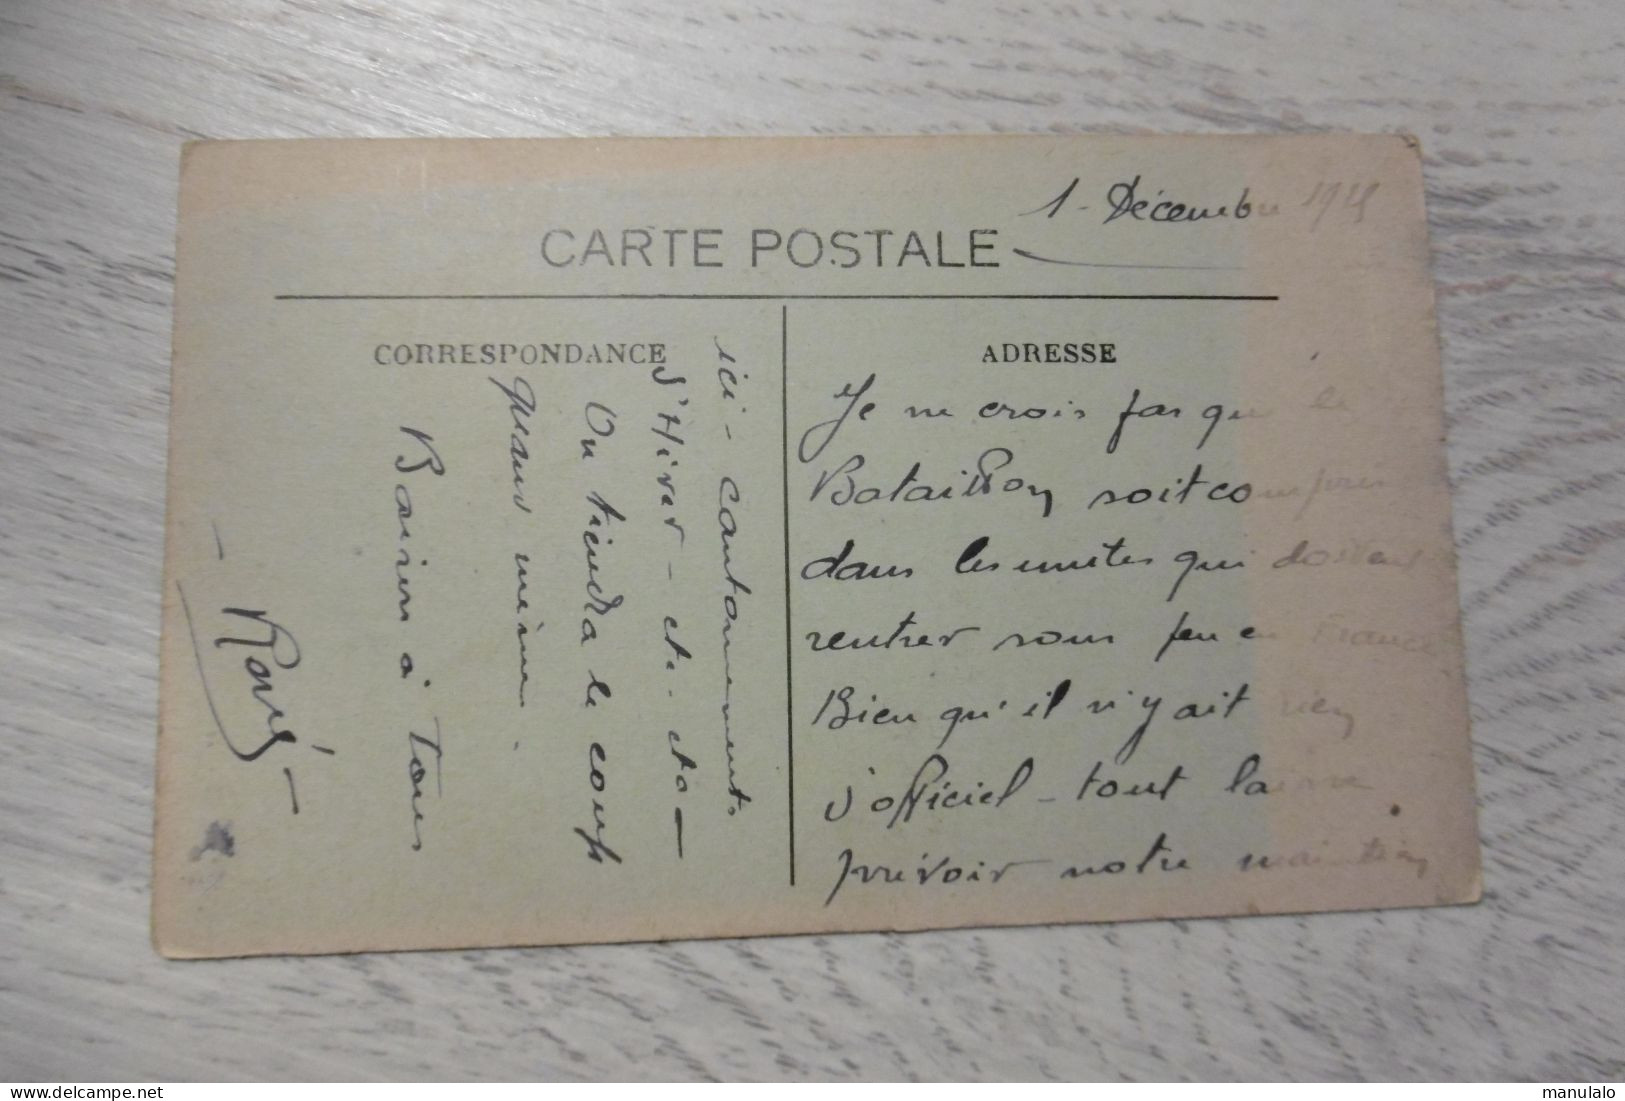 1 - Décembre 1925
CARTE POSTALE
CORRESPONDANCE
ADRESSE
Je ne crois pas que le
Bataillon soit compris
dans les unités qui doivent
rentrer sous peu en France
Bien qu'il n'y ait rien
d'officiel - tout laisse
prévoir notre maintien
ici - cantonnements
d'Hiver - etc. etc -
On tiendra le coup
quand même.
Baisers à Tous
- René -
MANULALO